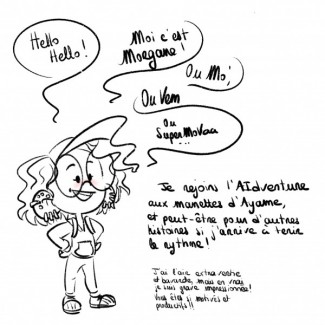 Hello
Hello!
Moi c'est
Morgane!
Ou Mo,
Ou Vem
Ou
SuperMoVaa
...
Je rejoins l'AIdventure
aux manettes d'Ayame,
et peut-être pour d'autres
histoires si j'arrive à tenir
le rythme!
J'ai l'air extravertie
et bavarde, mais en vrai
je suis grave impressionnée!
Vous êtes si motivés et
productifs!!